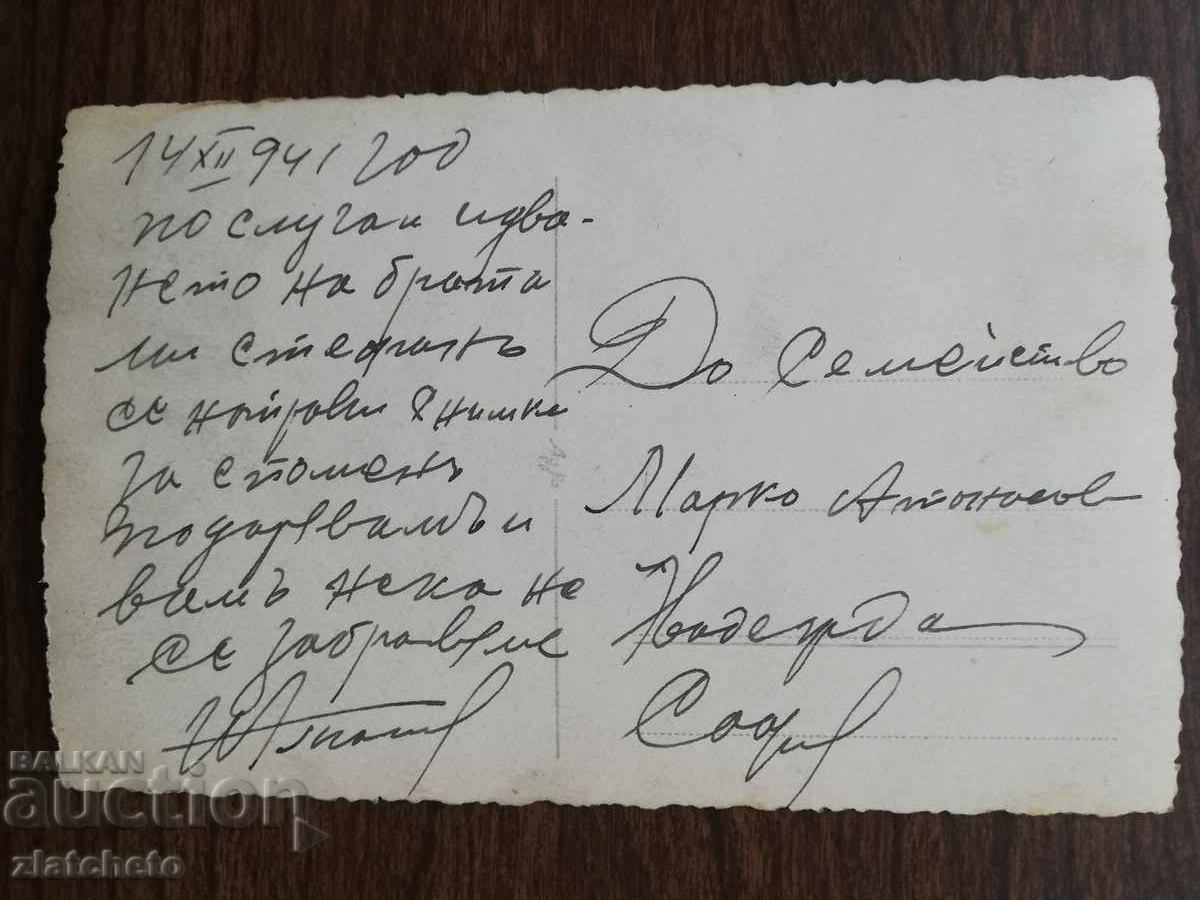 14 XII 941 год
по случаи идва-
нето на брата
ми стефанъ
се направи снимка
за споменъ
подарявамъ и
вамъ нека не
се забравяме
До Семейство
Марко Атанасов
Надежда
София
BALKAN
auction
zlatcheto